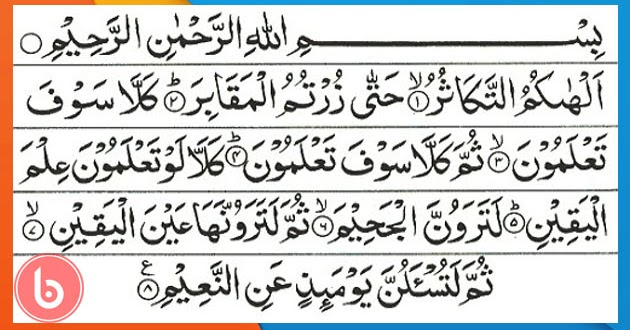 بِسْـــــــــمِ اللهِ الرَّحْمٰنِ الرَّحِيْمِ ○
اَلْهٰىكُمُ التَّكَاثُرُۙ ﴿۱﴾ حَتّٰى زُرْتُمُ الْمَقَابِرَؕ ﴿۲﴾ كَلَّا سَوْفَ
تَعْلَمُوْنَۙ ﴿۳﴾ ثُمَّ كَلَّا سَوْفَ تَعْلَمُوْنَؕ ﴿۴﴾ كَلَّا لَوْ تَعْلَمُوْنَ عِلْمَ
الْيَقِيْنِؕ ﴿۵﴾ لَتَرَوُنَّ الْجَحِيْمَۙ ﴿۶﴾ ثُمَّ لَتَرَوُنَّهَا عَيْنَ الْيَقِيْنِۙ ﴿۷﴾
ثُمَّ لَتُسْـَٔلُنَّ يَوْمَىِٕذٍ عَنِ النَّعِيْمِ ﴿۸﴾ ع
b